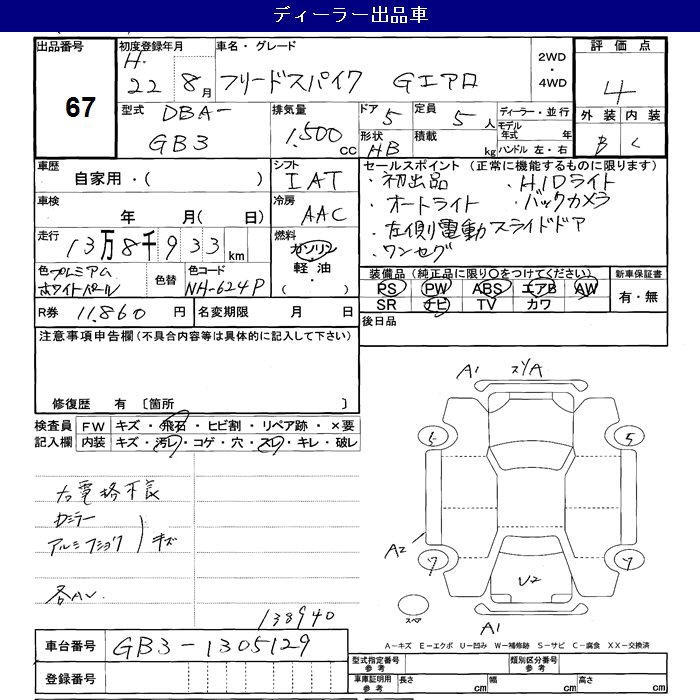 ディーラー出品車
出品番号 67
初度登録年月 H. 22 年 8 月
車名・グレード フリードスパイク Gエアロ
2WD ・ 4WD
評価点 4
外装 B 内装 C
型式 DBA- GB3
排気量 1,500 cc
ドア 5 形状 HB
定員 5 人 積載 kg
ディーラー・並行
モデル年式 年
ハンドル 左・右
車歴 自家用・( )
シフト IAT
車検 年 月( 日)
冷房 AAC
走行 13万8千933 km
燃料 ガソリン・軽油・( )
色 プレミアムホワイトパール
色替
色コード NH-624P
R券 11,860 円
名変期限 月 日
セールスポイント (正常に機能するものに限ります)
・初出品 ・HIDライト
・オートライト ・バックカメラ
・左側電動スライドドア
・ワンセグ
装備品(純正品に限り○をつけてください)
PS PW ABS エアB AW
SR ナビ TV カワ
新車保証書 有・無
後日品
注意事項申告欄(不具合内容等は具体的に記入して下さい)
修復歴 有 〔箇所 〕
検査員記入欄
FW キズ・飛石・ヒビ割・リペア跡・×要
内装 キズ・汚レ・コゲ・穴・スレ・キレ・破レ
右電格不良
Dミラー
キズ
各AU
138940
A1 スリA
5 5
A2
7 7
U2
スペア
A1
A-キズ E-エクボ U-凹み W-補修跡 S-サビ C-腐食 XX-交換済
車台番号 GB3-1305129
登録番号
型式指定番号 参考
類別区分番号 参考
車庫証明用 参考 長さ cm 幅 cm 高さ cm